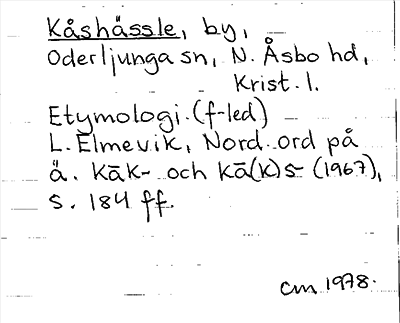 Kåshässle, by,
Oderljunga sn, N. Åsbo hd,
Krist. l.
Etymologi (f-led)
L. Elmevik, Nord. ord på
ä. kāk- och kā(k)s- (1967),
s. 184 ff.
cm 1978.